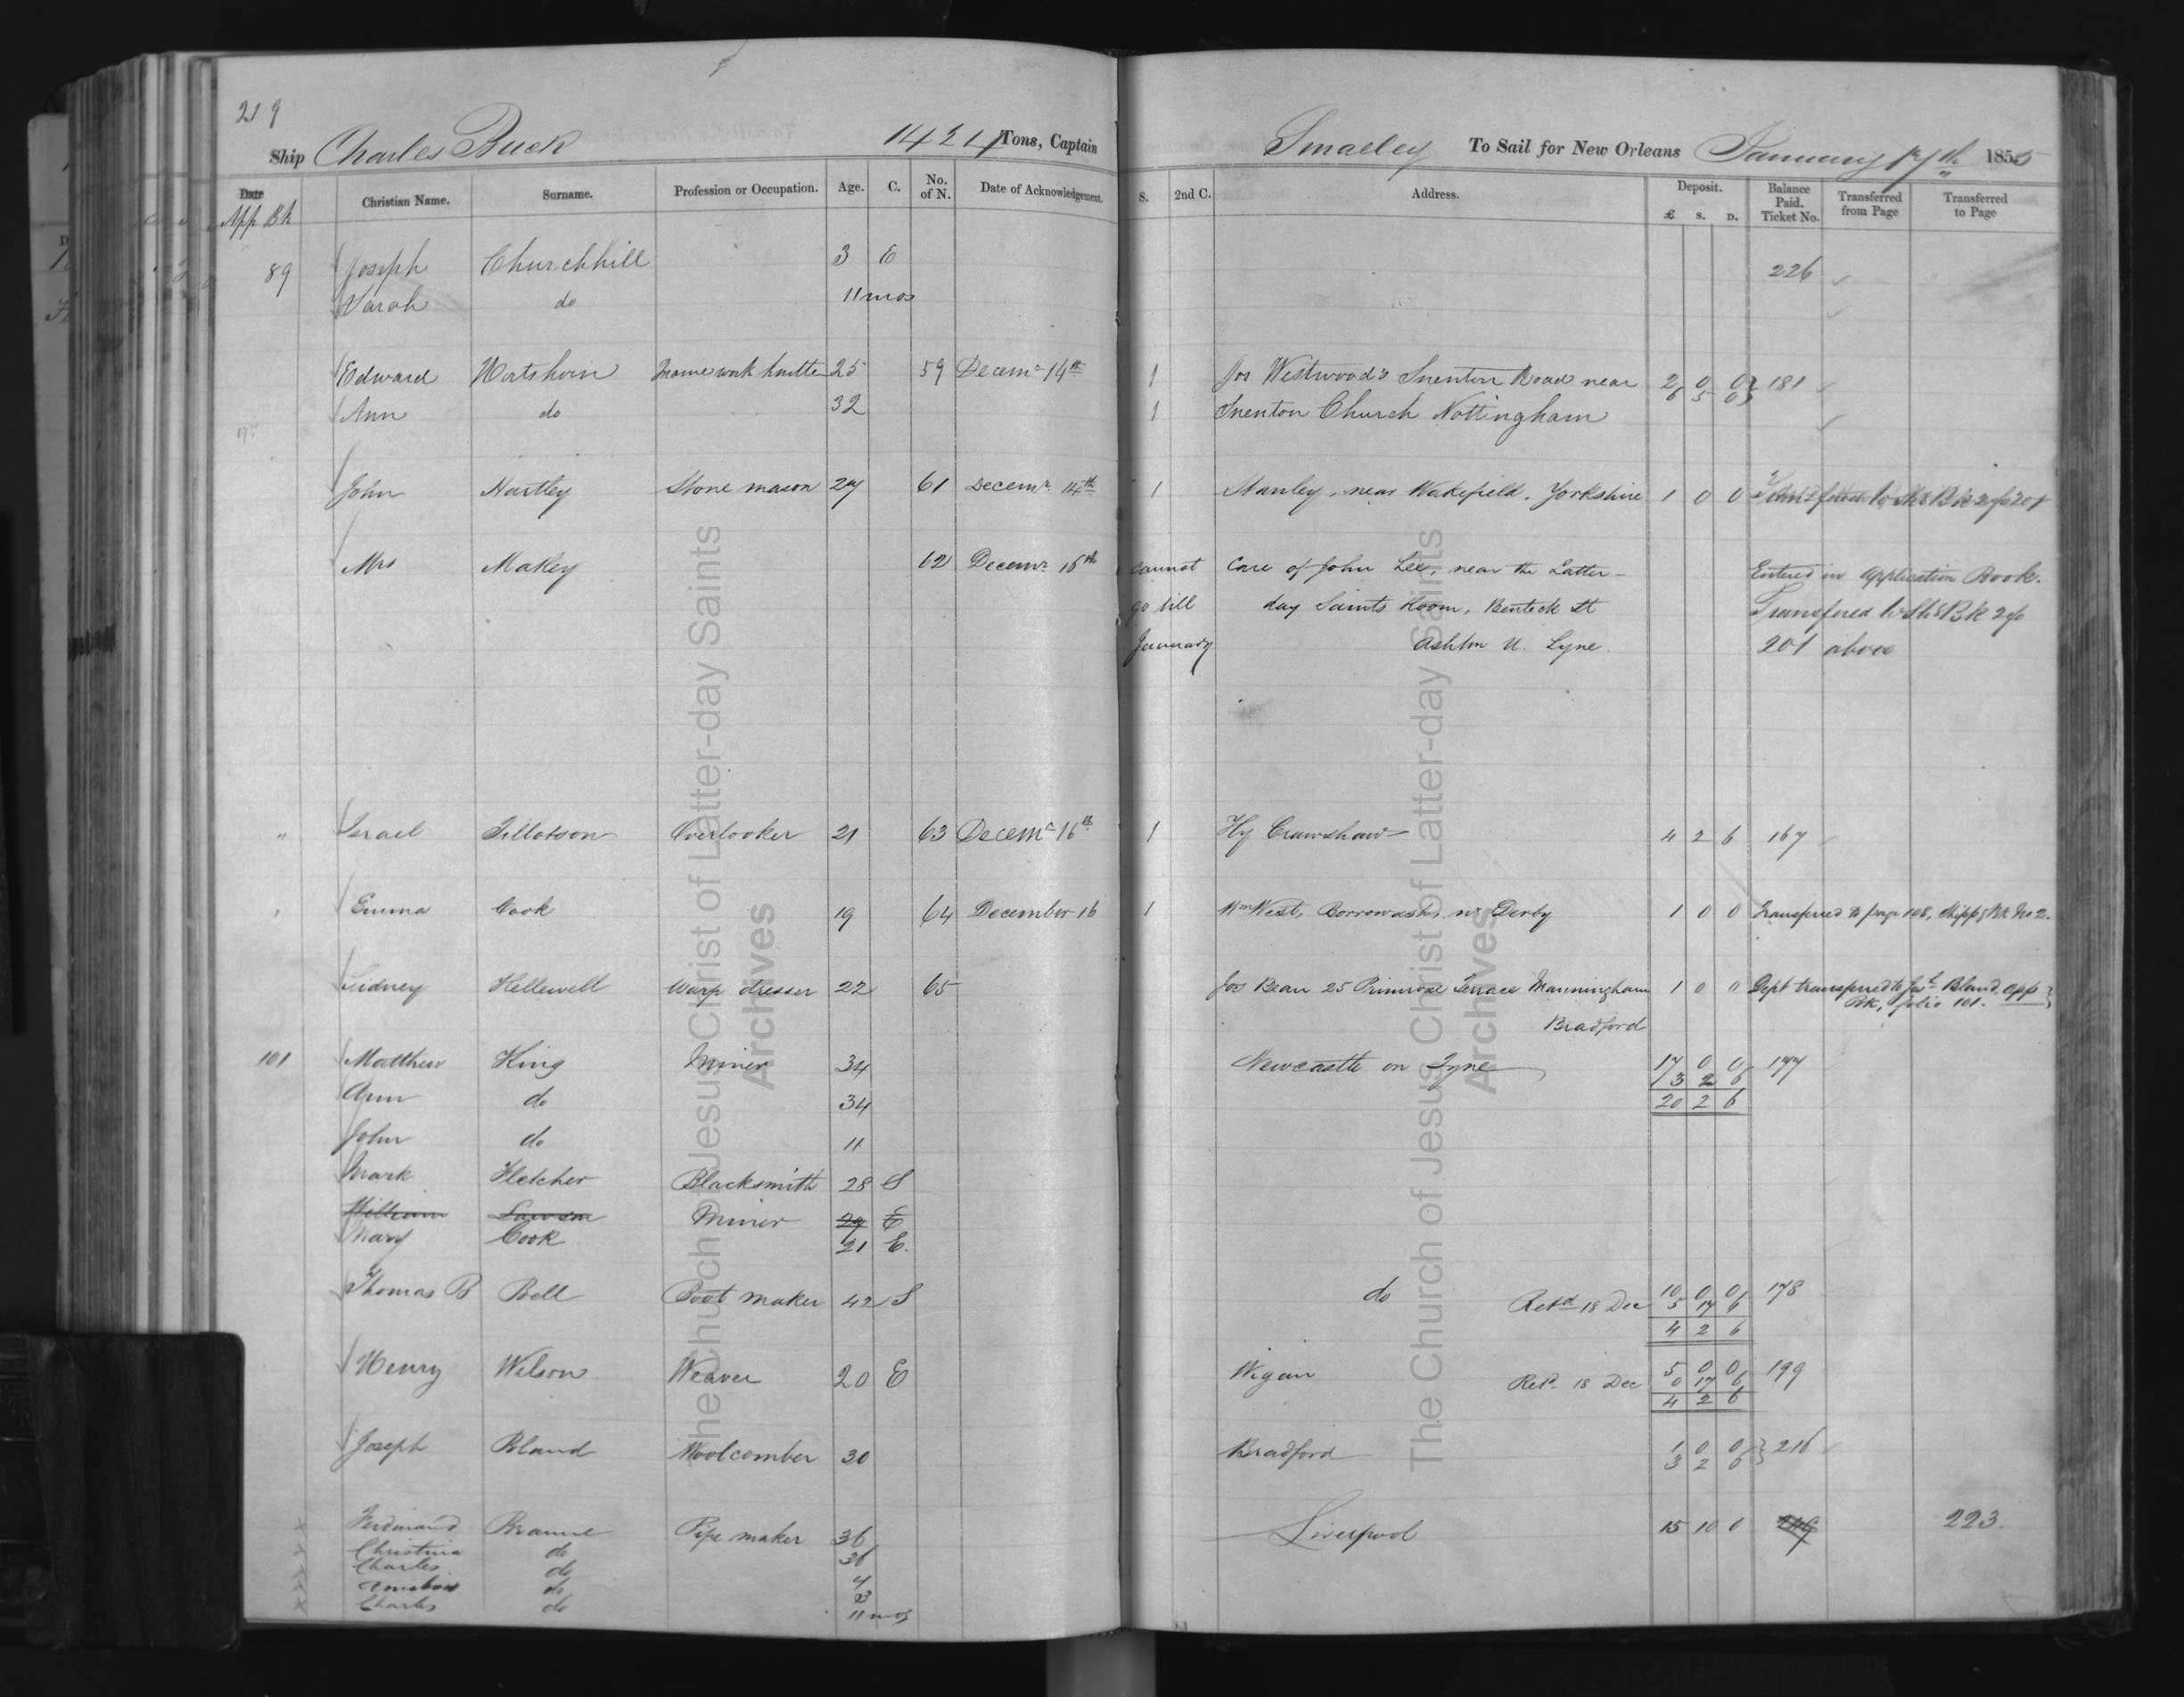 219
Ship Charles Buck 1424 Tons, Captain Smalley To Sail for New Orleans January 17th 1855
Date Christian Name. Surname. Profession or Occupation. Age. C. No. of N. Date of Acknowledgement. S. 2nd C. Address. Deposit. £ S. D. Balance Paid. Ticket No. Transferred from Page Transferred to Page
App Bk
89 Joseph Churchhill 3 E 226
Sarah do 11 mos
Edward Hartshorn Frame work knitter 25 59 Decemr 14th 1 Jos Westwood's Snenton Road near 2 0 0 181
Ann do 32 1 Snenton Church Nottingham 6 5 0
John Hartley Stone mason 27 61 Decemr 14th 1 Stanley, near Wakefield, Yorkshire 1 0 0
Mrs Makey 62 Decemr 16th cannot Care of John Lee, near the Latter- Entered in Application Book.
go till day Saints Room, Bentick St Transfered to Sh&Bk 2fo
January Ashton U. Lyne. 201 above
" Israel Tillotson Overlooker 21 63 Decemr 16th 1 Hy Crawshaw 4 2 6 167
Emma Cook 19 64 December 16 1 Wm West, Borrowash, nr Derby 1 0 0 Transferred to page 108, Shippg Bk No 2.
Sidney Hellewell Warp dresser 22 65 Jos Bean 25 Primrose Terrace Manningham 1 0 0 Dept transferred to Jos. Bland, app
Bradford Bk, folio 101.
101 Matthew King Miner 34 Newcastle on Tyne 17 0 0 177
3 2 6
Ann do 34 20 2 6
John do 11
Mark Fletcher Blacksmith 28 S
William Lawson Miner 29 E
Mary Cook 21 E.
Thomas B Bell Boot maker 42 S do 10 0 0 178
Retd 18 Dec 5 17 6
4 2 6
Henry Wilson Weaver 20 E Wigan 5 0 0 199
Retd 18 Dec 0 17 6
4 2 6
Joseph Bland Woolcomber 30 Bradford 1 0 0 216
3 2 6
Ferdinand Braune Pipe maker 36 Liverpool 15 10 0 223.
Christina do 36
Charles do 4
do 3
Charles do 11 mos
The Church of Jesus Christ of Latter-day Saints
Archives
The Church of Jesus Christ of Latter-day Saints
Archives